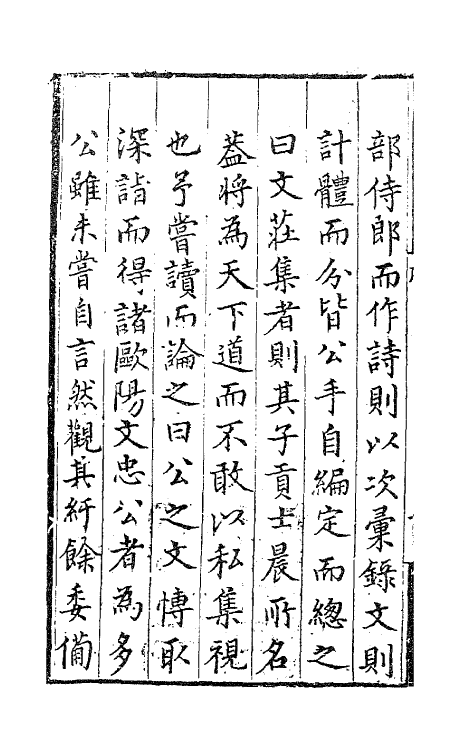 部侍郎而作詩則以次彚錄文則
計體而分皆公手自編定而總之
曰文莊集者則其子貢士晨所名
葢將為天下道而不敢以私集視
也予嘗讀而論之曰公之文慱取
深詣而得諸歐陽文忠公者為多
公雖未嘗自言然觀其紆餘委備